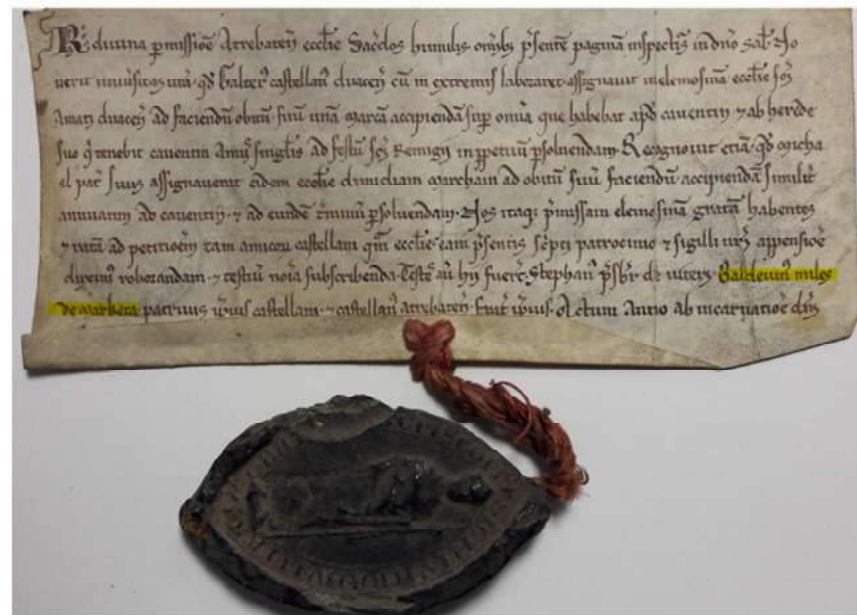 R. divina pmissiōe Atrebateñ ecclie Sac̄dos humilis. om̄ibȝ p̄sentē paginā inspect̄is in dn̄o sal̄. No
verit univ̄sitas vr̄a. qd̄ Galterꝰ castellanꝰ duaceñ cū in extremis laboraret. assignavit in elemosinā ecclie sc̄i
Amati duaceñ ad faciendū obitū suū unā marcā accipiendā sup om̄ia que habebat apd̄ caventin ⁊ ab herede
suo q̄ tenebit caventin annis singlis̄ ad festū sc̄i Remigii in ꝑpetuū ꝑsolvendam. Recognovit etiā. qd̄ micha
el pat̄ suus assignaverat eidem ecclie dimidiam marcham ad obitū suū faciendū. accipiendā similit̄
annuatim ad caventin. ⁊ ad eundē t̄minū ꝑsolvendam. Nos itaqȝ p̄missam elemosinā gratā habentes
⁊ ratā ad petitiōem tam amicoꝝ castellani qm̄ ecclie. eam p̄sentis sc̄pti patrocinio ⁊ sigilli nr̄i appensiōe
roborandam. ⁊ testiū noīa subscribenda. Testē aū hii fuer̄t. Stephanꝰ p̄sbr̄ de vitery. Baldevinꝰ miles
de marketa patruus ip̄ius castellani. ⁊ castellanꝰ atrebateñ. frat̄ ip̄ius. Actum Anno ab incarnatiōe dn̄i